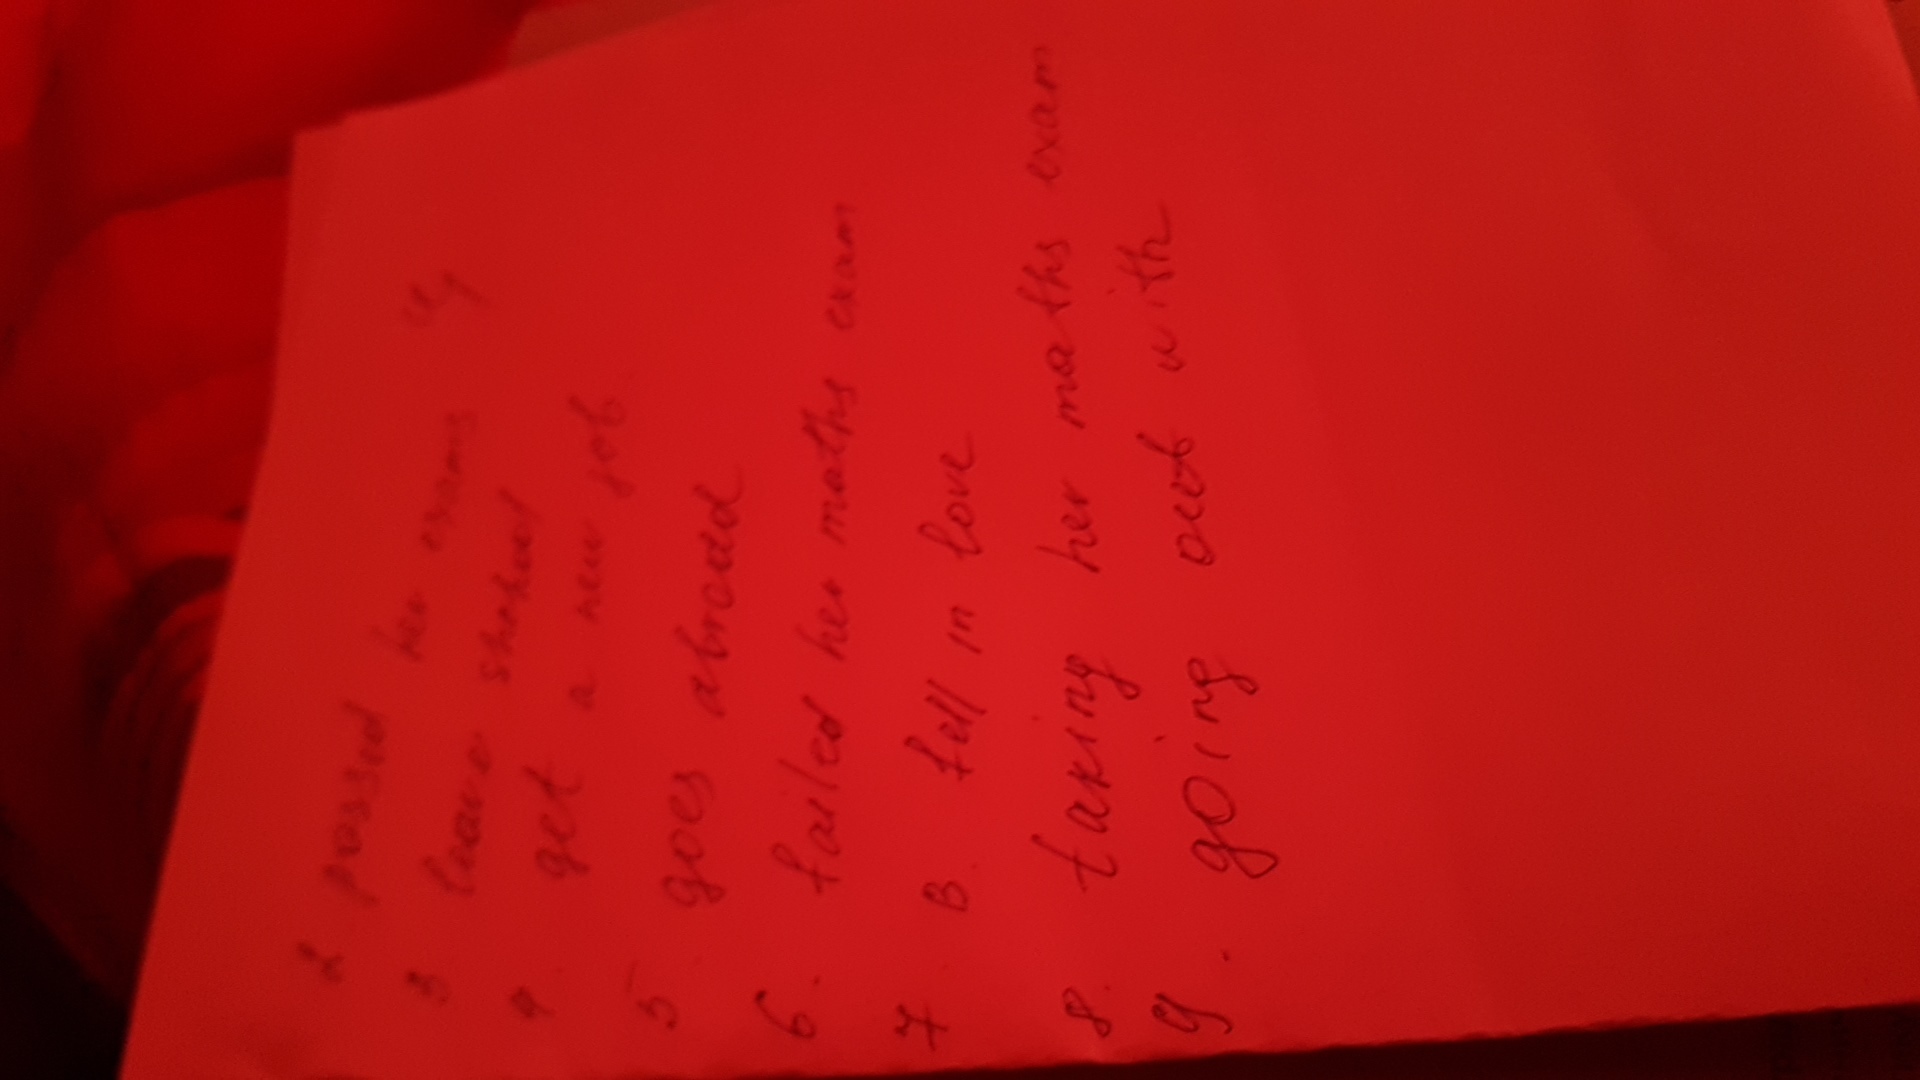 2 passed her exams
3 leave school
4 get a new job.
5 goes abroad
6. failed her maths exam
7 B. fell in love
8. taking her maths exam
9. going out with